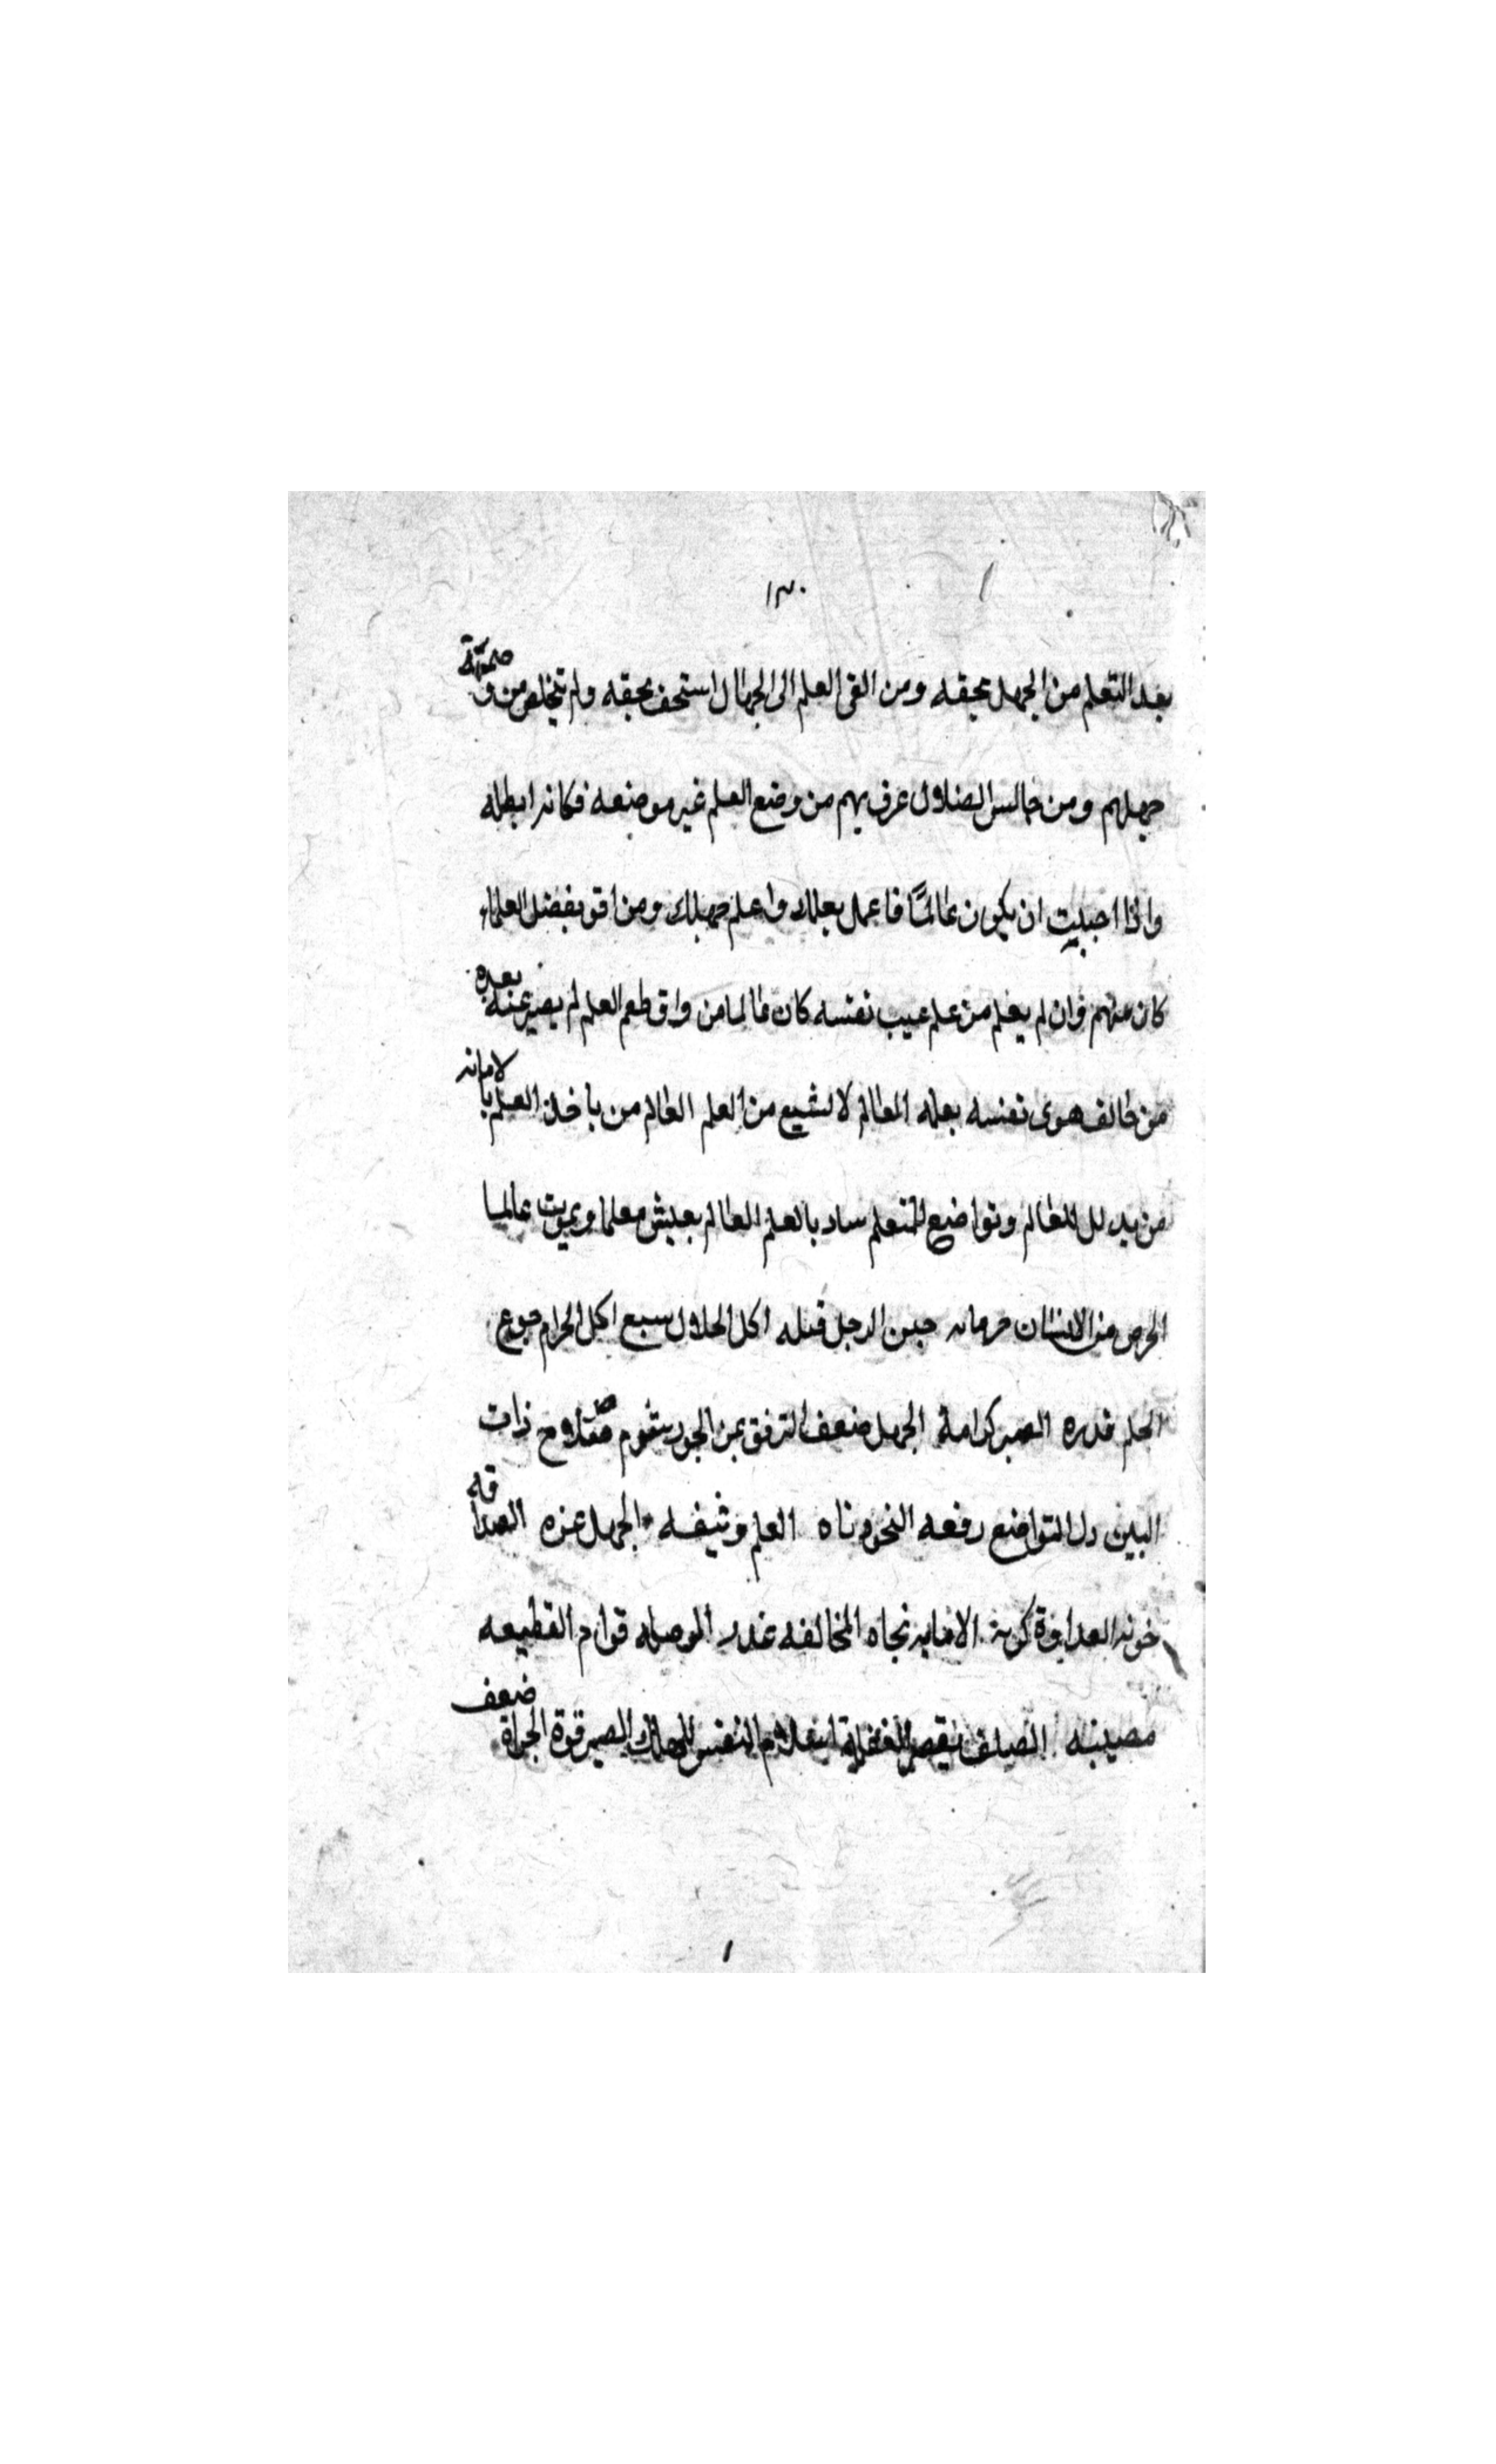 ١٣٠
بعد التعلم من الجهل بحقه ومن القى العلم الى الجهال استخف بحقه ولم يتخلص من وصمة
جهلهم ومن جالس الضلال عرف بهم من وضع العلم غير موضعه فكانه ابطله
واذا احبيت ان يكون عالمًا فاعمل بعلمك واعلم جهلك ومن اقر بفضل العلماء
كان منهم وان لم يعلم من علم عيب نفسه كان عالما من ذاق طعم العلم لم يصبر عنه بعده
من خالف هوى نفسه بعلمه العالم لا يشبع من العلم العالم من ياخذ العلم بالامانه
من يدلل للعالم وتواضع للمتعلم ساد بالعلم العالم يعيش معلما ويموت عالما
الحرص من الانسان حرمانه جبن الرجل قتله اكل الحلال سبع اكل الحرام جوع
الحلم قدره الصبر كرامة الجهل ضعف الترفق يمن الجود شوم صلاح ذات
البين دل التواضع رفعه النخوه ناه العلم وثيقه الجهل عزه الصداقه
خونه العداوة كربة الامانه نجاه المخالفه غدر الموصله قوام القطيعه
مصيبه الصلف نقص الغفلة استلام النفس للهلاك الصبر قوة الجراة ضعف